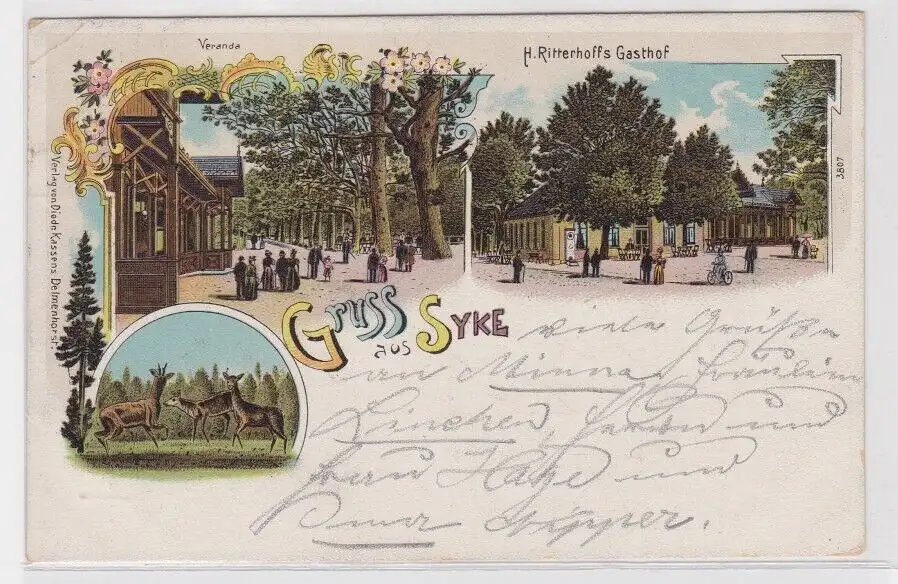 Veranda
H. Ritterhoffs Gasthof
3807
Verlag von Diedr. Kassens. Delmenhorst.
Gruss
aus SYKE
viele Grüße
an Minna, Fräulein
Linchen, Herrn und
Frau Hage und